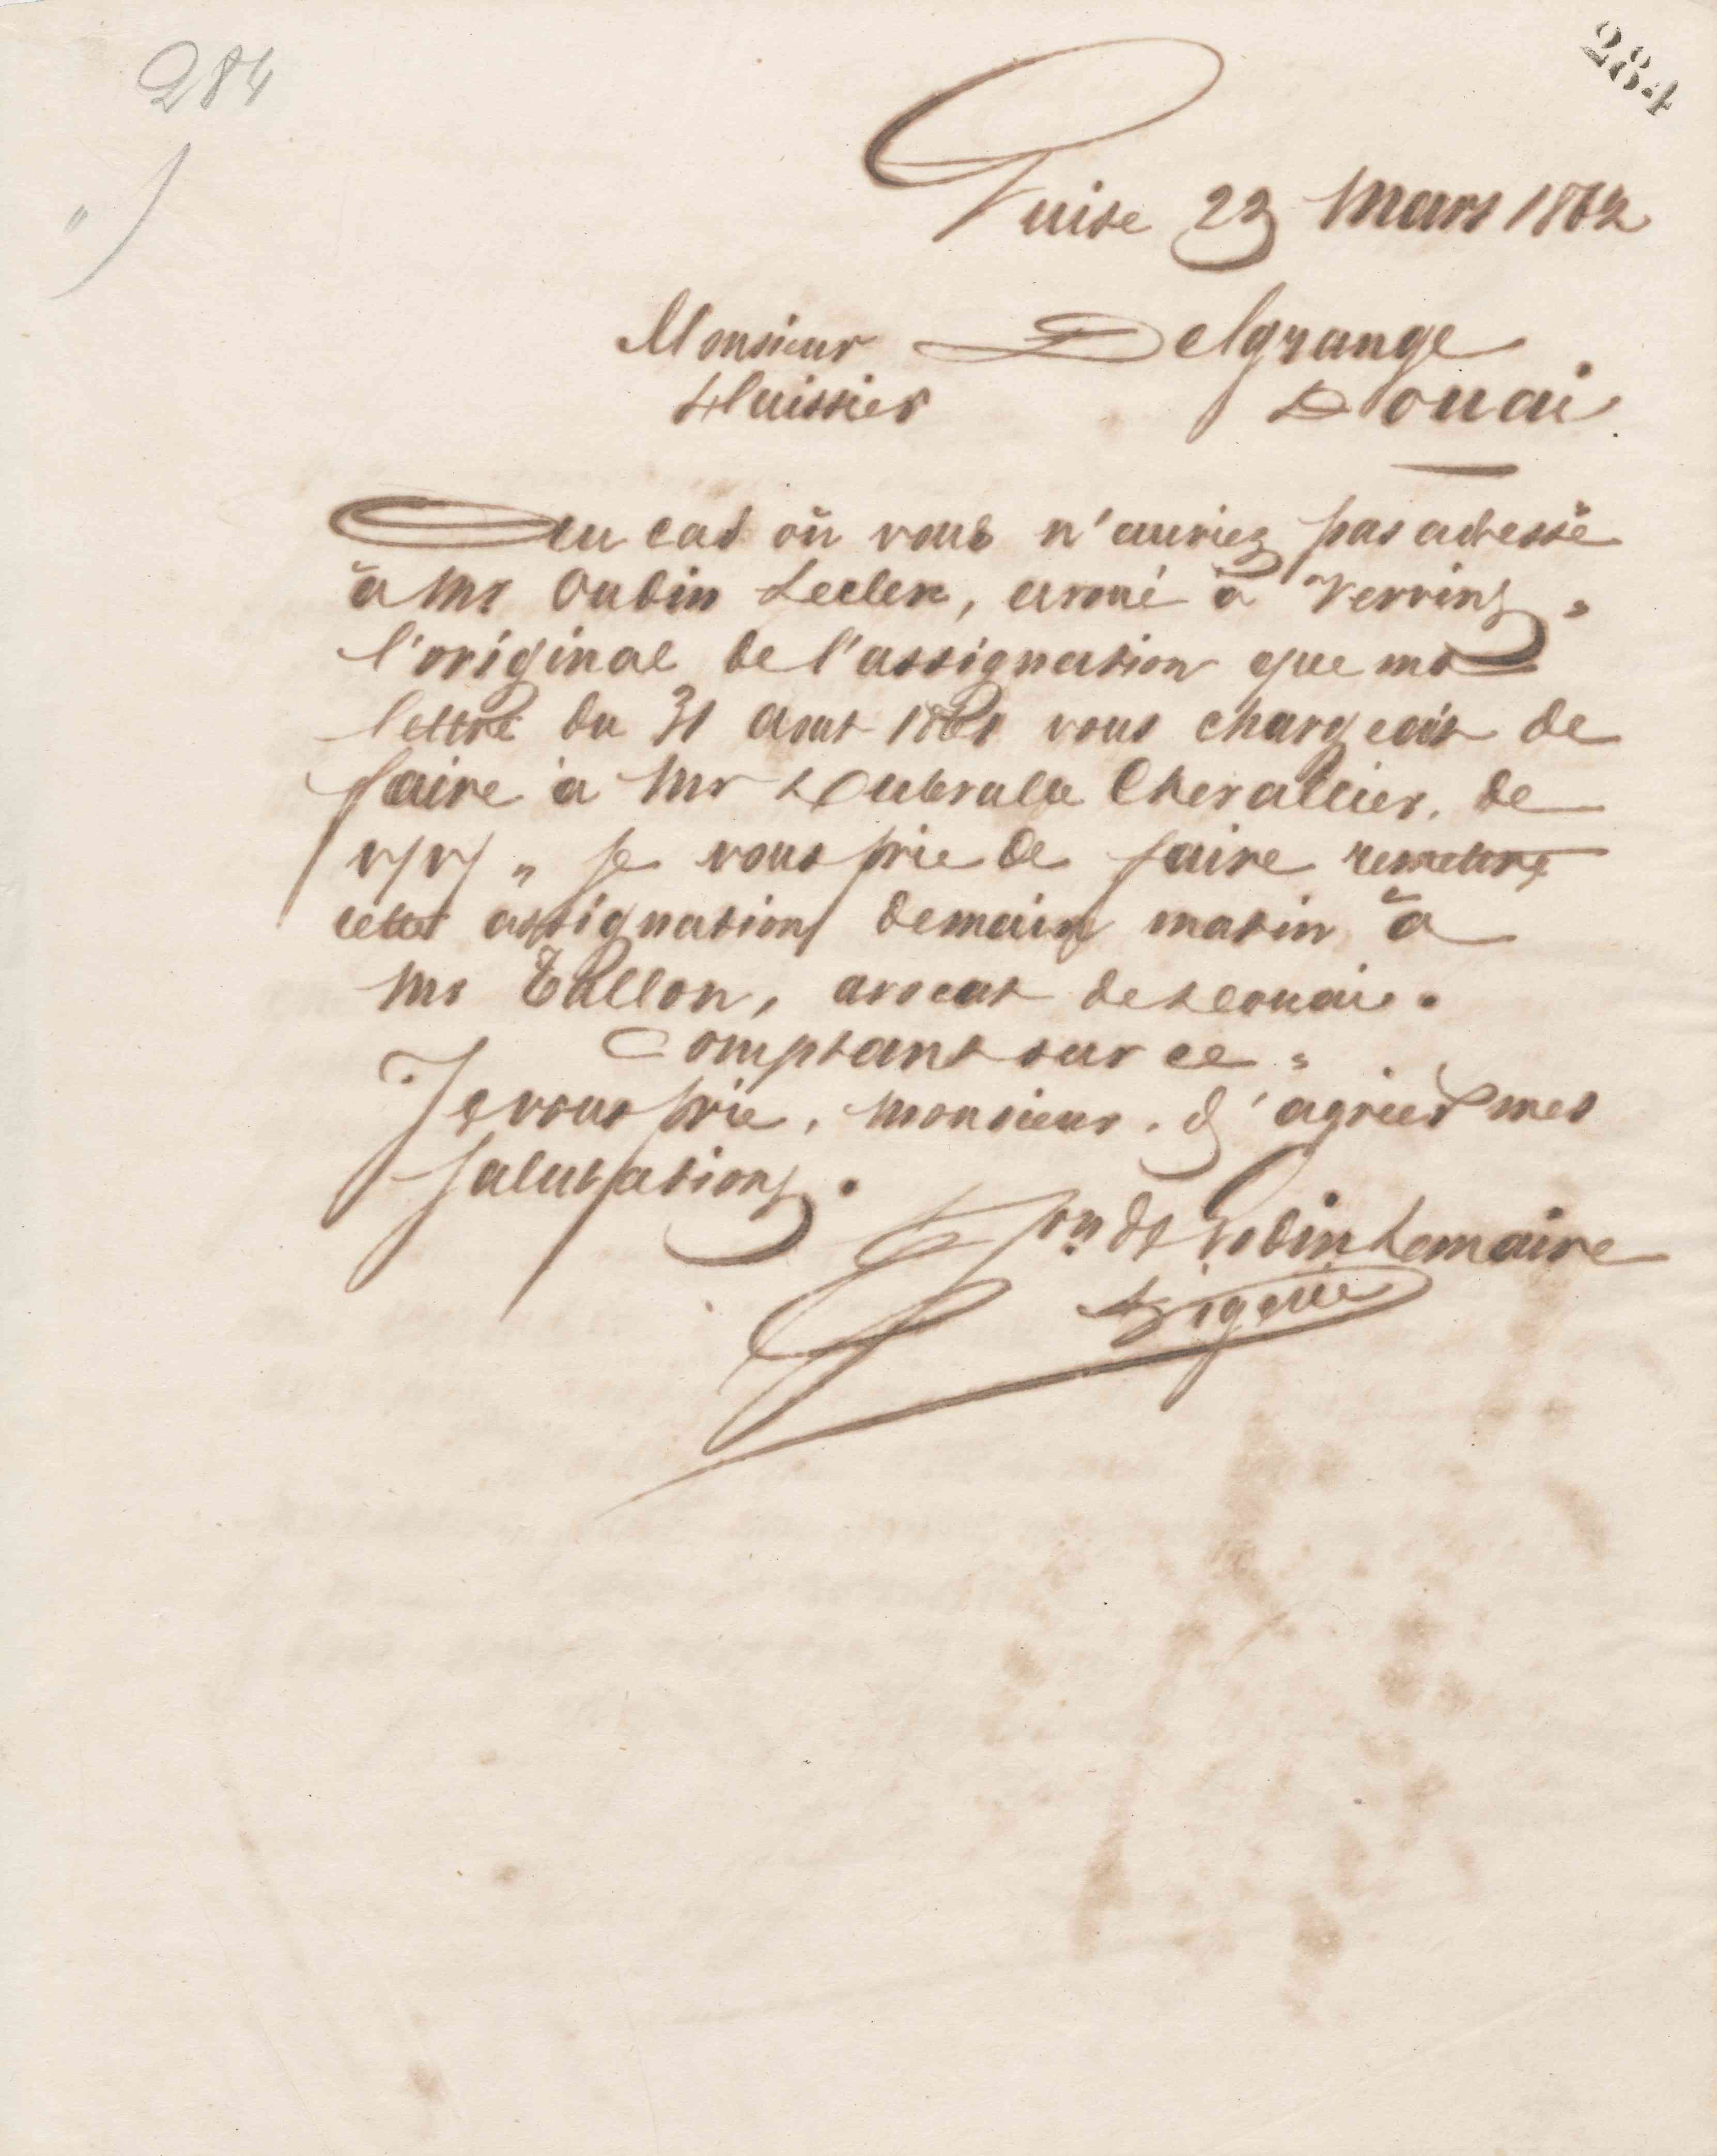 284
284
Guise 23 Mars 1862
Monsieur Delgrange
Huissier Douai
Au cas où vous n'auriez pas adressé
à Mr Oudin Leclerc, avoué à Vervins,
l'original de l'assignation que ma
lettre du 31 aout 1861 vous chargeait de
faire à Mr Dubrulle Chevallier, de
v/v/ " Je vous prie de faire remettre
cette assignation demain matin à
Mr Tallon, avocat de Douai.
Comptant sur ce "
Je vous prie, Monsieur, d'agréer mes
salutations.
Pon de Godin Lemaire